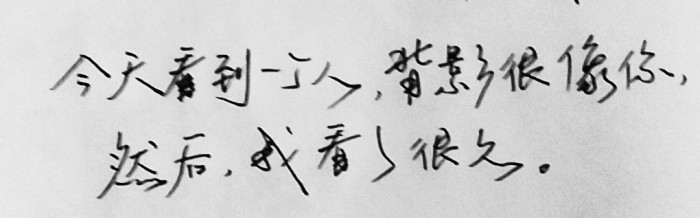 今天看到一个人，背影很像你，
然后，我看了很久。